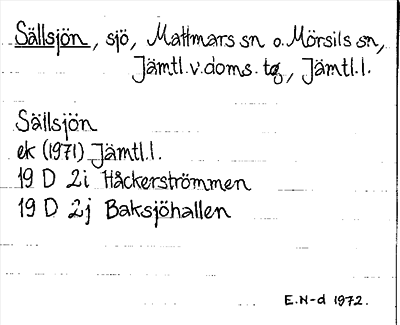 Sällsjön, sjö, Mattmars sn o. Mörsils sn,
Jämtl.v.doms. tg, Jämtl.l.
Sällsjön
ek (1971) Jämtl.l.
19 D 2i Håckerströmmen
19 D 2j Baksjöhallen
E.N-d 1972.